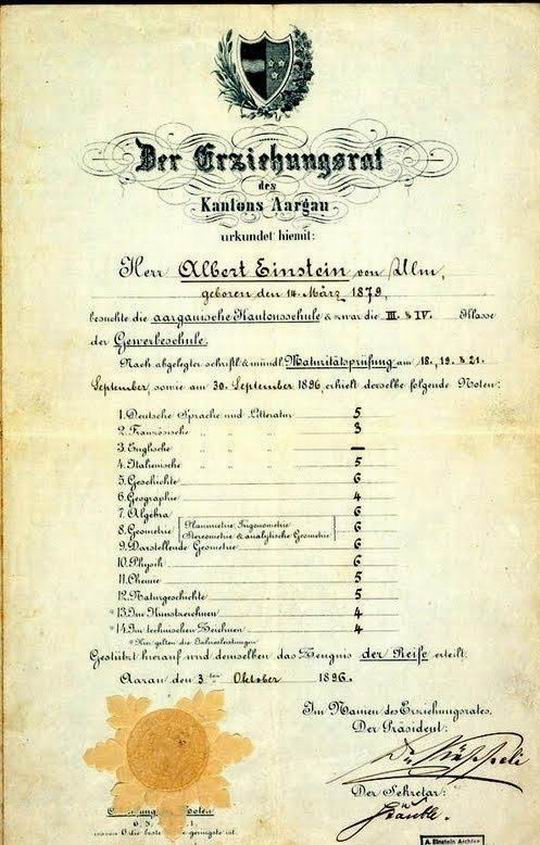 Der Erziehungsrat
des
Kantons Aargau
urkundet hiemit:
Herr Albert Einstein von Ulm,
geboren den 14. März 1879,
besuchte die aargauische Kantonsschule & zwar die III. & IV. Klasse
der Gewerbeschule.
Nach abgelegter schriftl. & mündl. Maturitätsprüfung am 18., 19. & 21.
September, sowie am 30. September 1896, erhielt derselbe folgende Noten:
1. Deutsche Sprache und Litteratur 5
2. Französische " " " 3
3. Englische " " " —
4. Italienische " " " 5
5. Geschichte 6
6. Geographie 4
7. Algebra 6
8. Geometrie Planimetrie, Trigonometrie 6
Stereometrie & analytische Geometrie
9. Darstellende Geometrie 6
10. Physik 6
11. Chemie 5
12. Naturgeschichte 5
*13. Im Kunstzeichnen 4
*14. Im technischen Zeichnen 4
*Hier gelten die Jahresleistungen
Gestützt hierauf wird demselben das Zeugnis der Reife erteilt.
Aarau den 3ten Oktober 1896.
Im Namen des Erziehungsrates,
Der Präsident:
Der Sekretär:
Noten
6. 5. 1.
wovon 6 die beste geringste ist.
A. Einstein Archive